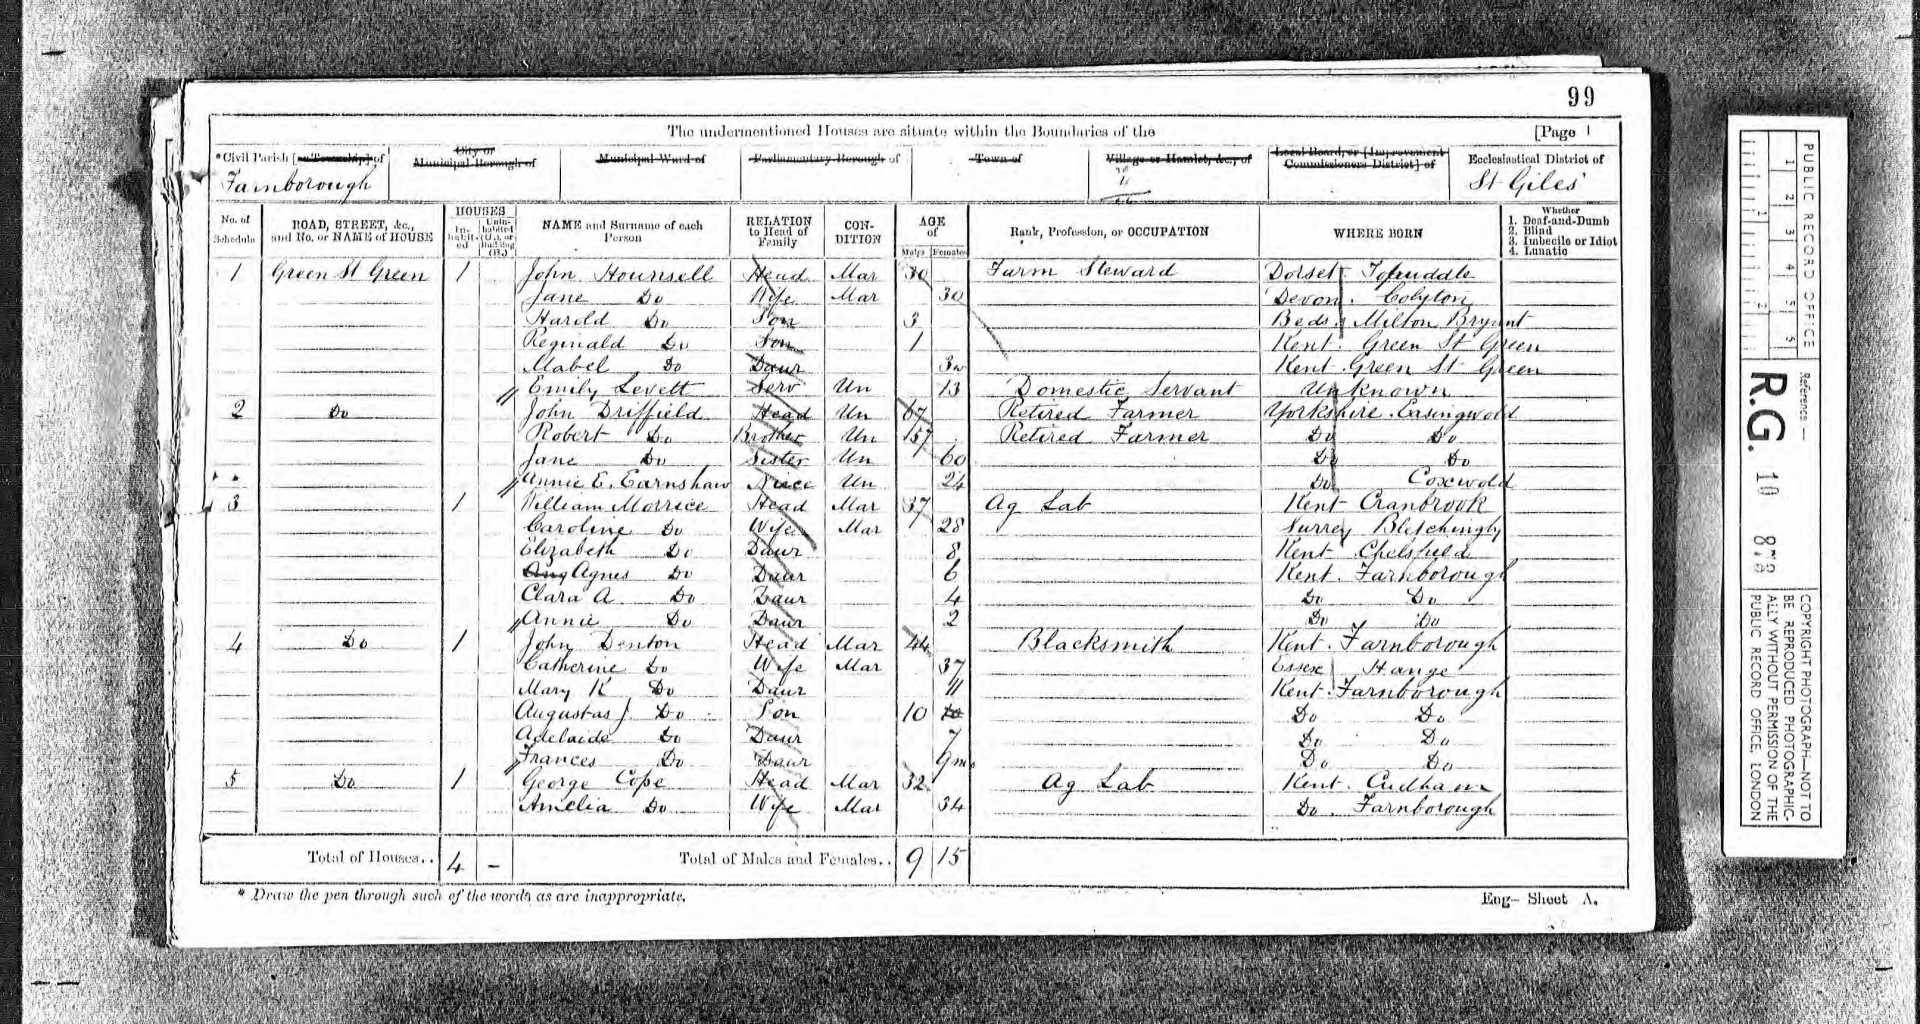 99
The undermentioned Houses are situate within the Boundaries of the [Page 1
*Civil Parish [or Township] of City or Municipal Borough of Municipal Ward of Parliamentary Borough of Town of Village or Hamlet, &c., of Local Board, or [Improvement Commissioners District] of Ecclesiastical District of
Farnborough St Giles
No. of Schedule ROAD, STREET, &c., and No. or NAME of HOUSE HOUSES In-habit-ed Unin-habited (U.), or Building (B.) NAME and Surname of each Person RELATION to Head of Family CON-DITION AGE of Males Females Rank, Profession, or OCCUPATION WHERE BORN Whether 1. Deaf-and-Dumb 2. Blind 3. Imbecile or Idiot 4. Lunatic
1 Green St Green 1 John Hounsell Head Mar 30 Farm Steward Dorset. Tolpuddle
Jane Do Wife Mar 30 Devon. Colyton
Harold Do Son 3 Beds. Milton Bryant
Reginald Do Son 1 Kent. Green St Green
Mabel Do Daur 3w Kent Green St Green
Emily Levett Serv Un 13 Domestic Servant Unknown
2 Do John Driffield Head Un 67 Retired Farmer Yorkshire. Easingwold
Robert Do Brother Un 57 Retired Farmer Do Do
Jane Do Sister Un 60 Do Do
Annie E. Earnshaw Niece Un 24 Do Coxwold
3 1 William Morrice Head Mar 37 Ag Lab Kent Cranbrook
Caroline Do Wife Mar 28 Surrey Bletchingly
Elizabeth Do Daur 8 Kent Chelsfield
Agnes Do Daur 6 Kent. Farnborough
Clara A. Do Daur 4 Do Do
Annie Do Daur 2 Do Do
4 Do 1 John Denton Head Mar 44 Blacksmith Kent. Farnborough
Catherine Do Wife Mar 37 Essex Hange
Mary K Do Daur 11 Kent. Farnborough
Augustas J. Do Son 10 Do Do
Adelaide Do Daur 7 Do Do
Frances Do Daur 9m Do Do
5 Do 1 George Cope Head Mar 32 Ag Lab Kent. Cudham
Amelia Do Wife Mar 34 Do. Farnborough
Total of Houses.. 4 - Total of Males and Females.. 9 15
* Draw the pen through such of the words as are inappropriate.
Eng- Sheet A.
PUBLIC RECORD OFFICE
1 2 3 4 5
1 2
Reference:—
R.G. 10 878
COPYRIGHT PHOTOGRAPH—NOT TO
BE REPRODUCED PHOTOGRAPHIC-
ALLY WITHOUT PERMISSION OF THE
PUBLIC RECORD OFFICE, LONDON